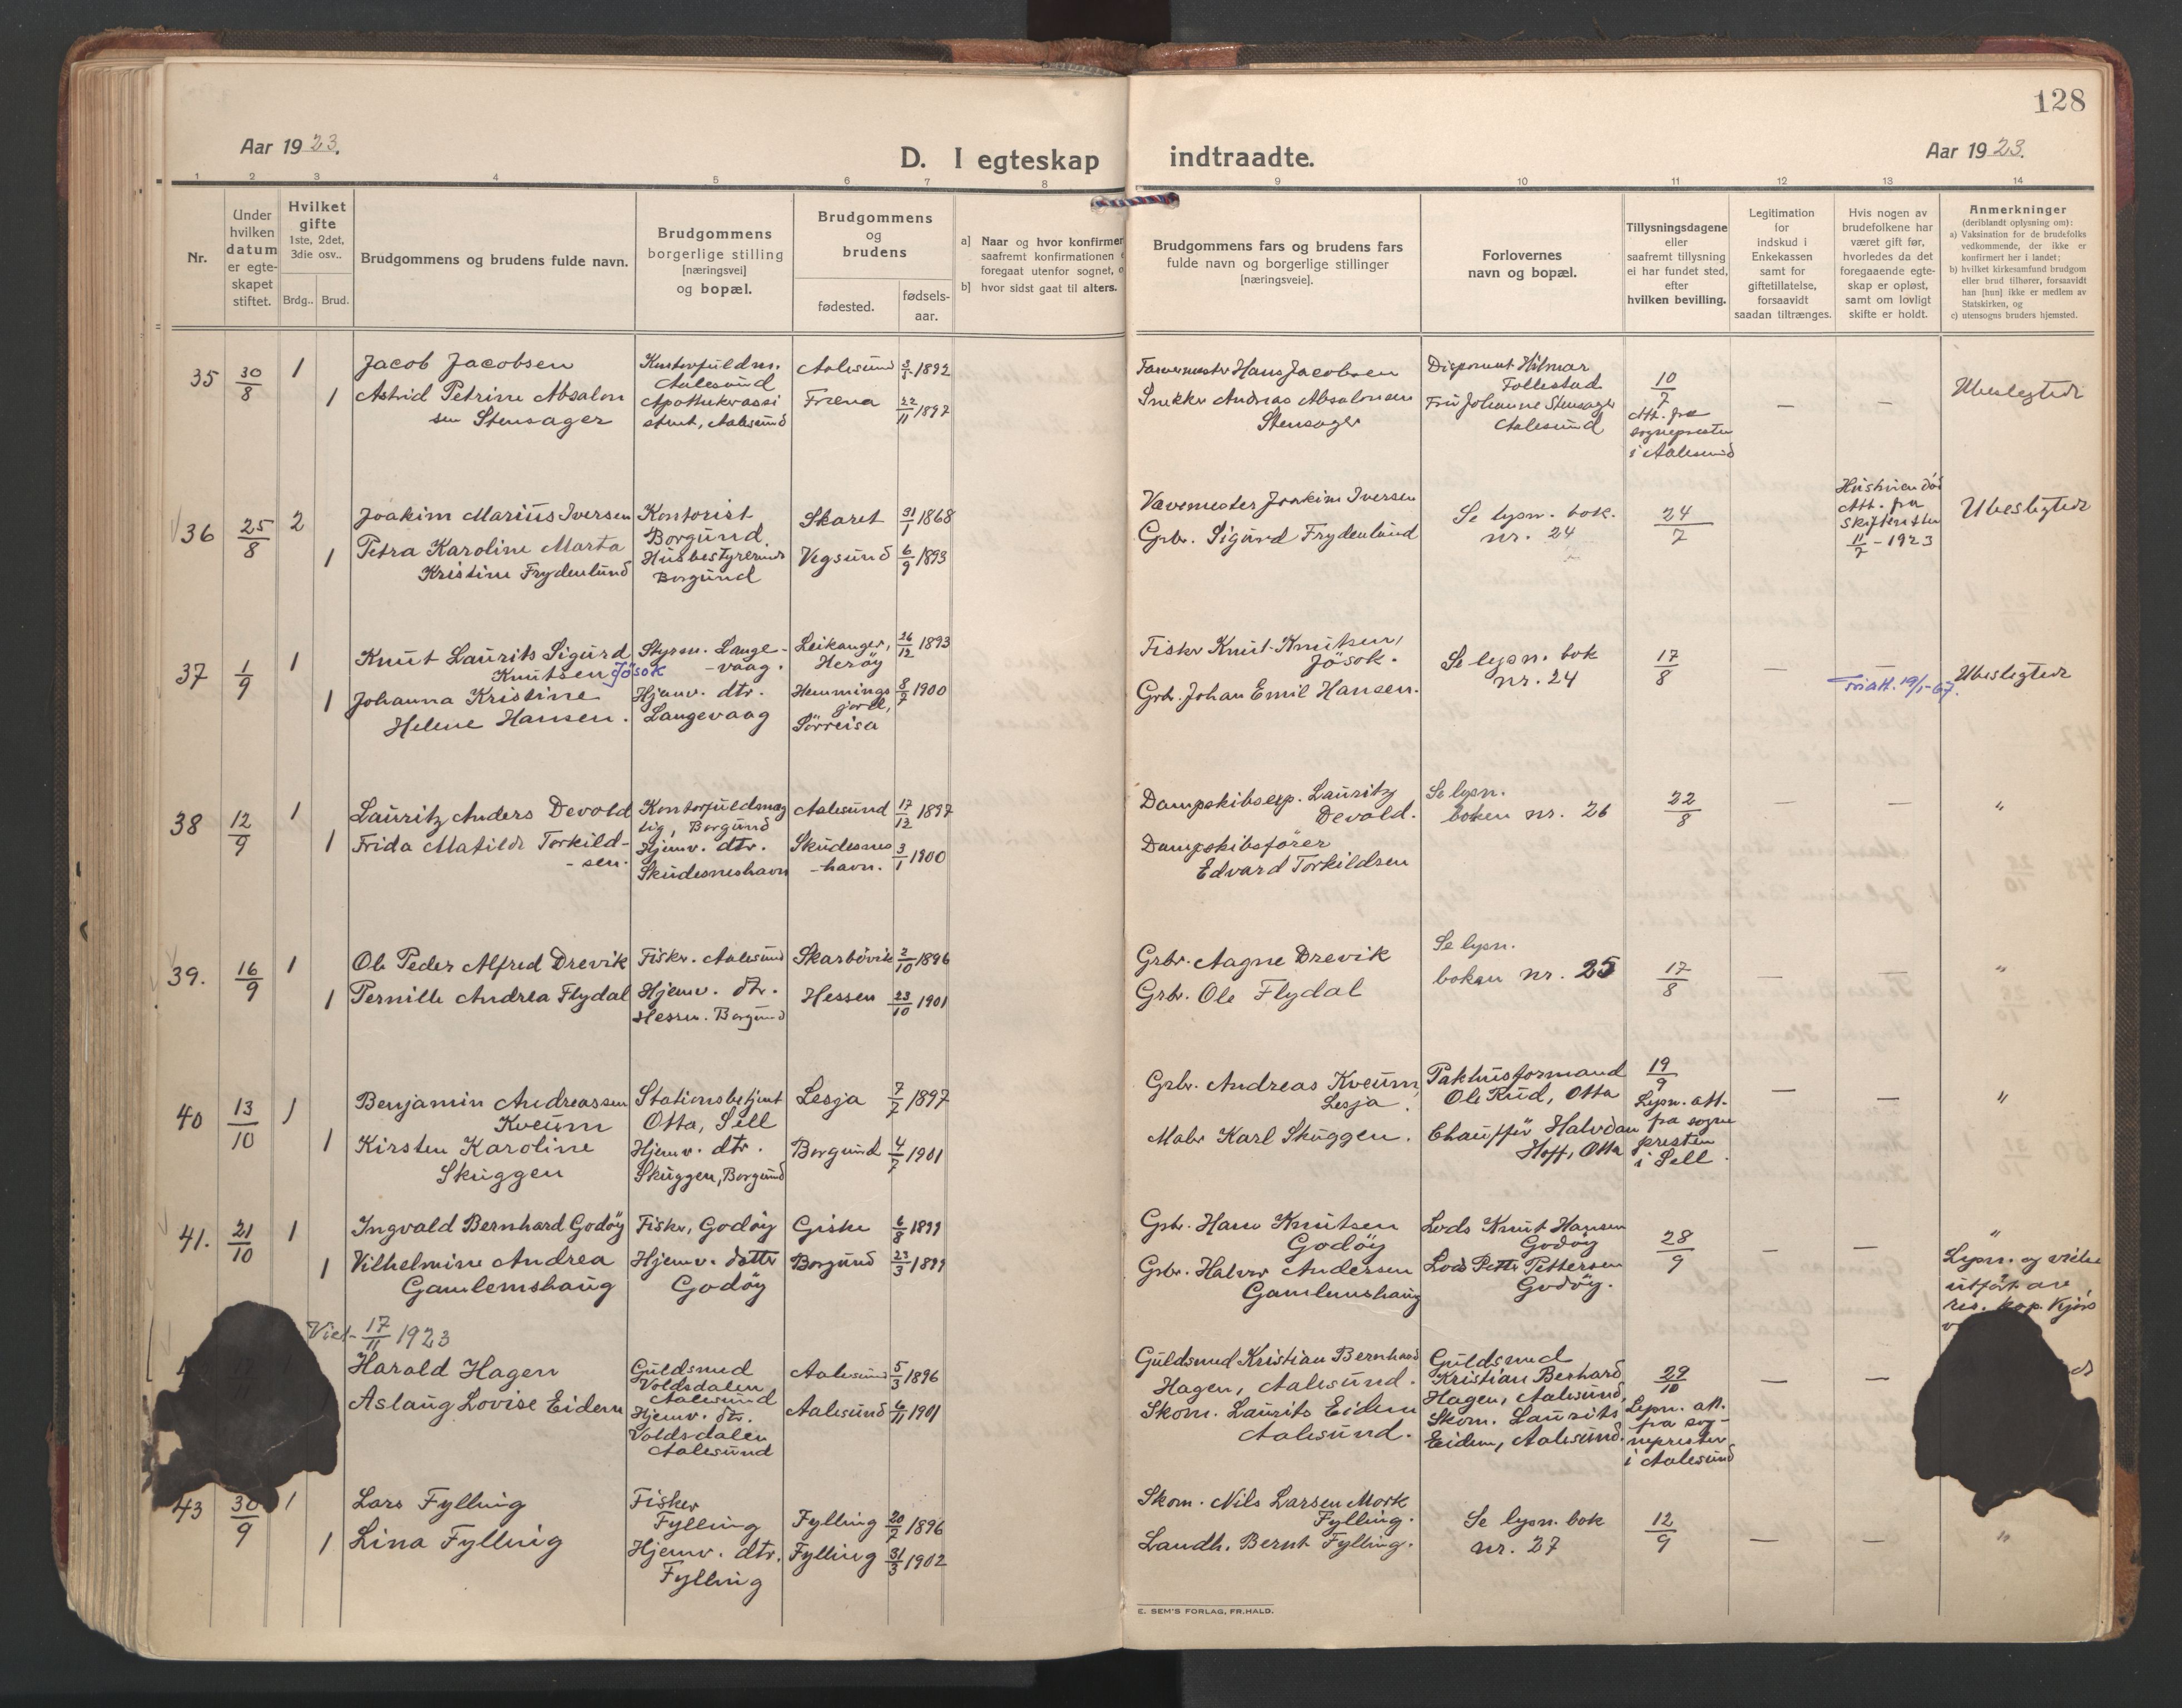 128
Aar 1923.
D. I egteskap indtraadte.
Aar 1923.
1 2 3 4 5 6 7 8 9 10 11 12 13 14
Nr.
Under
hvilken
datum
er egte-
skapet
stiftet.
Hvilket
gifte
1ste, 2det,
3die osv..
Brdg.. Brud.
Brudgommens og brudens fulde navn.
Brudgommens
borgerlige stilling
[næringsvei]
og bopæl.
Brudgommens
og
brudens
fødested.
fødsels-
aar.
a] Naar og hvor konfirmer
saafremt konfirmationen
foregaat utenfor sognet, o
b] hvor sidst gaat til alters.
Brudgommens fars og brudens fars
fulde navn og borgerlige stillinger
[næringsveie].
Forlovernes
navn og bopæl.
Tillysningsdagene
eller
saafremt tillysning
ei har fundet sted,
efter
hvilken bevilling.
Legitimation
for
indskud i
Enkekassen
samt for
giftetillatelse,
forsaavidt
saadan tiltrænges.
Hvis nogen av
brudefolkene har
været gift før,
hvorledes da det
foregaaende egte-
skap er opløst,
samt om lovligt
skifte er holdt.
Anmerkninger
(deriblandt oplysning om):
a) Vaksination for de brudefolks
vedkommende, der ikke er
konfirmert her i landet;
b) hvilket kirkesamfund brudgom
eller brud tilhører, forsaavidt
han [hun] ikke er medlem av
Statskirken, og
c) utensogns bruders hjemsted.
35
30/8
1
1
Jacob Jacobsen
Astrid Petrine Absalon
sen Stensager
Kontorfuldm.
Aalesund
Apothekerassi
stent, Aalesund
Aalesund
1892
Fræna
22/11 1897
Farvermester Hans Jacobsen
Snekker Andreas Absalonsen
Stensager
Disponent Hilmar
Follestad
Fru Johanne Stensager
Aalesund
10/7
Att. fra
sognepresten
i Aalesund
—
—
Ubeslegtede
36
25/8
2
1
Joakim Marius Iversen
Petra Karoline Marta
Kristine Frydenlund
Kontorist
Borgund.
Husbestyrerinde
Borgund
Skaret
31/1 1868
Vegsund
6/9 1893
Vævemester Joakim Iversen
Grbr. Sigurd Frydenlund
Se lysn. bok.
nr. 24
24/7
Hustruen död
Att. fra
skifteretten
11/7 - 1923
Ubeslegtede
37
1/9
1
1
Knut Laurits Sigurd
Knutsen Jösok
Johanna Kristine
Helene Hansen.
Styrm. Lange-
-vaag.
Hjemv. dtr.
Langevaag
Leikanger,
Heröy
26/12 1893
Hemmings
jord,
Sörreisa
8/7 1900
Fisker Knut Knutsen,
Jösok.
Grbr. Johan Emil Hansen.
Se lysn. bok
nr. 24
17/8
—
—
19/1-67.
Ubeslegtede
38
12/9
1
1
Lauritz Anders Devold
Frida Matilde Torkild-
-sen.
Kontorfuldmæg
tig, Borgund
Hjemv. dtr.
Skudesneshavn
Aalesund
17/12 1897
Skudesnes
-havn.
3/1 1900
Dampskibsexp. Lauritz
Devold.
Dampskibsförer
Edvard Torkildsen
Se lysn.
boken nr. 26
22/8
—
—
"
39.
16/9
1
1
Ole Peder Alfred Drevik
Pernille Andrea Flydal
Fisker. Aalesund
Hjemv. dtr.
Hessen. Borgund
Skarbövik
2/10 1896
Hessen
23/10 1901
Grbr. Aagne Drevik
Grbr. Ole Flydal
Se lysn.
boken nr. 25
17/8
—
—
"
40
13/10
1
1
Benjamin Andreassen
Kveum
Kirsten Karoline
Skuggen
Stationsbetjent
Otta, Sell
Hjemv. dtr.
Skuggen, Borgund
Lesja
7/7 1897
Borgund
4/7 1901
Grbr. Andreas Kveum,
Lesja.
Maler Karl Skuggen.
Pakhusformand
Ole Rud, Otta
Chauffür Halvdan
Hoff, Otta
19/9
Lysn. att.
fra sogne
presten
i Sell.
—
—
"
41.
21/10
1
1
Ingvald Bernhard Godöy
Vilhelmine Andrea
Gamlemshaug
Fisker, Godöy
Hjemv. datter
Godöy
Giske
6/8 1899
Borgund
23/3 1899
Grbr. Hans Knutsen
Godöy
Grbr. Halvor Andersen
Gamlemshaug
Lods Knut Hansen
Godöy
Lods Petter Pettersen
Godöy.
28/9
—
—
"
Lysn. og vielse
utfört av
res. kap. Kjös
Viet 17/11 1923
Harald Hagen
Aslaug Lovise Eidem
Guldsmed
Voldsdalen
Aalesund
Hjemv. dtr.
Voldsdalen
Aalesund
Aalesund
5/3 1896
Aalesund
6/11 1901
Guldsmed Kristian Bernhard
Hagen, Aalesund.
Skom. Laurits Eidem
Aalesund.
Guldsmed
Kristian Berhard
Hagen, Aalesund,
Skom. Laurits
Eidem, Aalesund.
29/10
Lysn. att.
fra sog-
nepresten
i Aalesund
—
—
43
30/9
1
1
Lars Fylling
Lina Fylling
Fisker
Fylling
Hjemv. dtr.
Fylling
Fylling
20/7 1896
Fylling
31/3 1902
Skom. Nils Larsen Mork
Fylling.
Landh. Bernt Fylling.
Se lysn. bok
nr. 27
12/9
—
—
"
E. SEM'S FORLAG, FR.HALD.